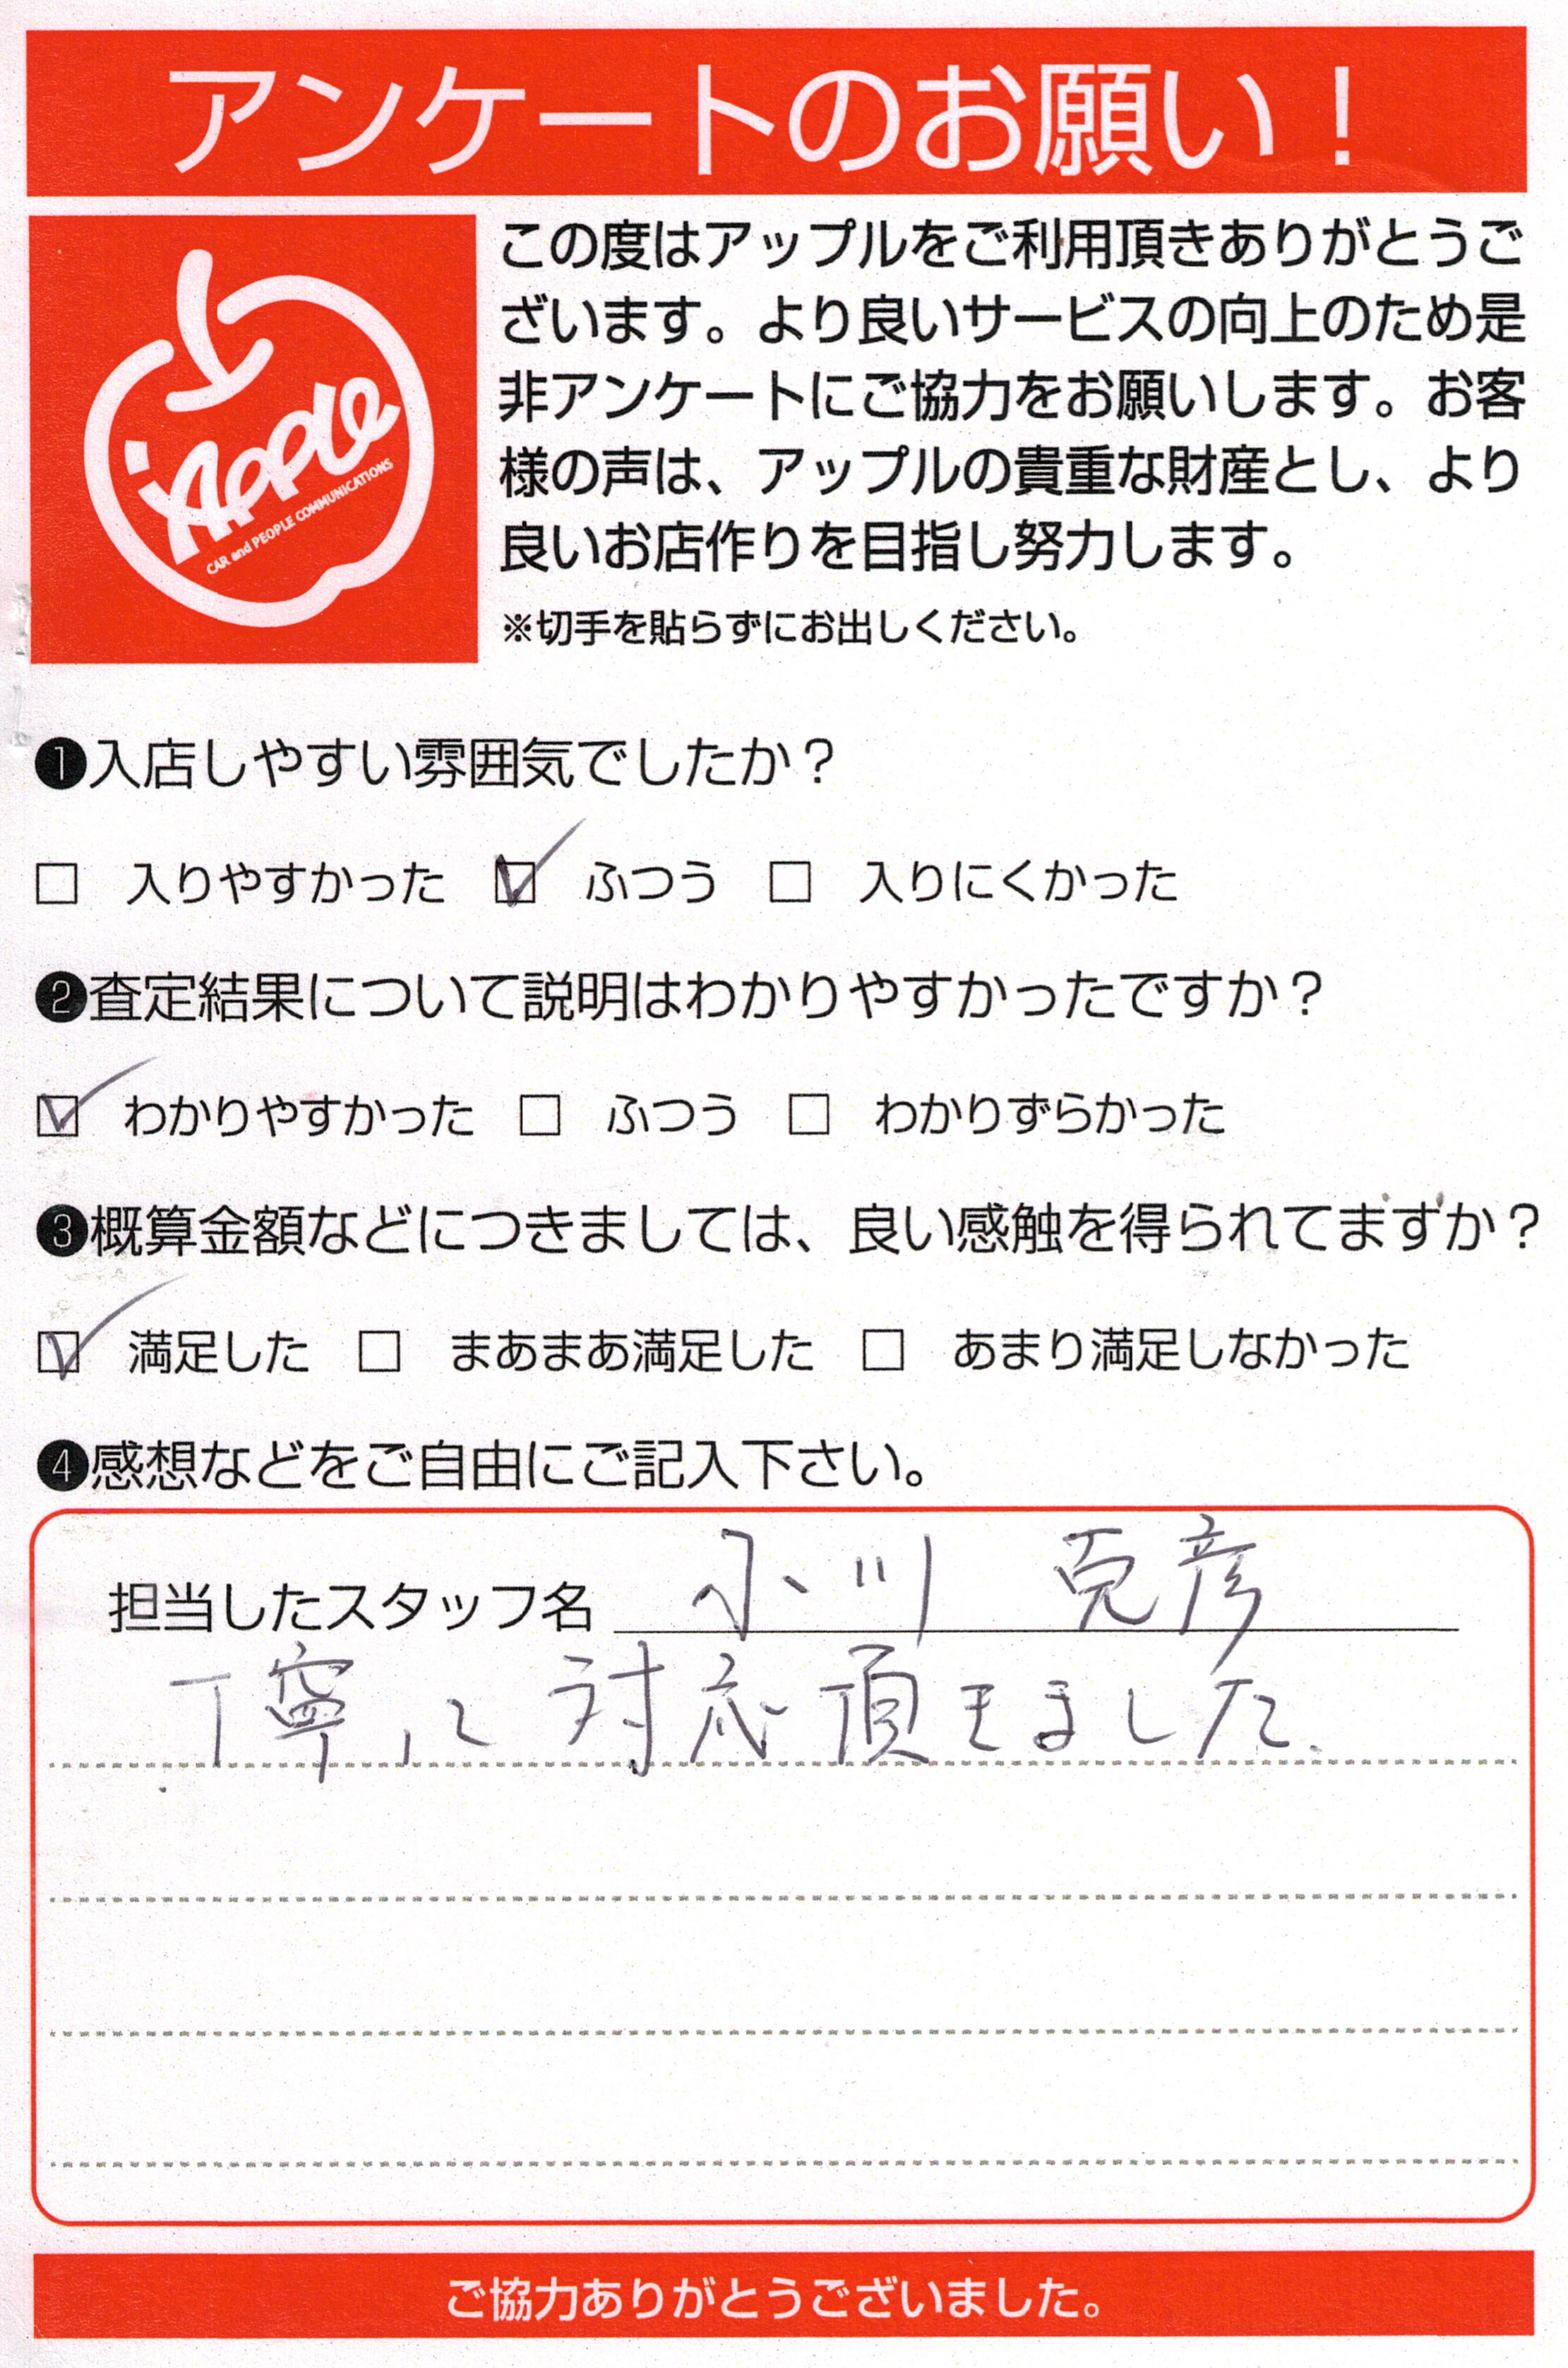 アンケートのお願い！
Apple
CAR and PEOPLE COMMUNICATIONS
この度はアップルをご利用頂きありがとうご
ざいます。より良いサービスの向上のため是
非アンケートにご協力をお願いします。お客
様の声は、アップルの貴重な財産とし、より
良いお店作りを目指し努力します。
※切手を貼らずにお出しください。
❶入店しやすい雰囲気でしたか？
□ 入りやすかった ☑ ふつう □ 入りにくかった
❷査定結果について説明はわかりやすかったですか？
☑ わかりやすかった □ ふつう □ わかりずらかった
❸概算金額などにつきましては、良い感触を得られてますか？
☑ 満足した □ まあまあ満足した □ あまり満足しなかった
❹感想などをご自由にご記入下さい。
担当したスタッフ名 小川 克彦
丁寧に対応頂きました.
ご協力ありがとうございました。